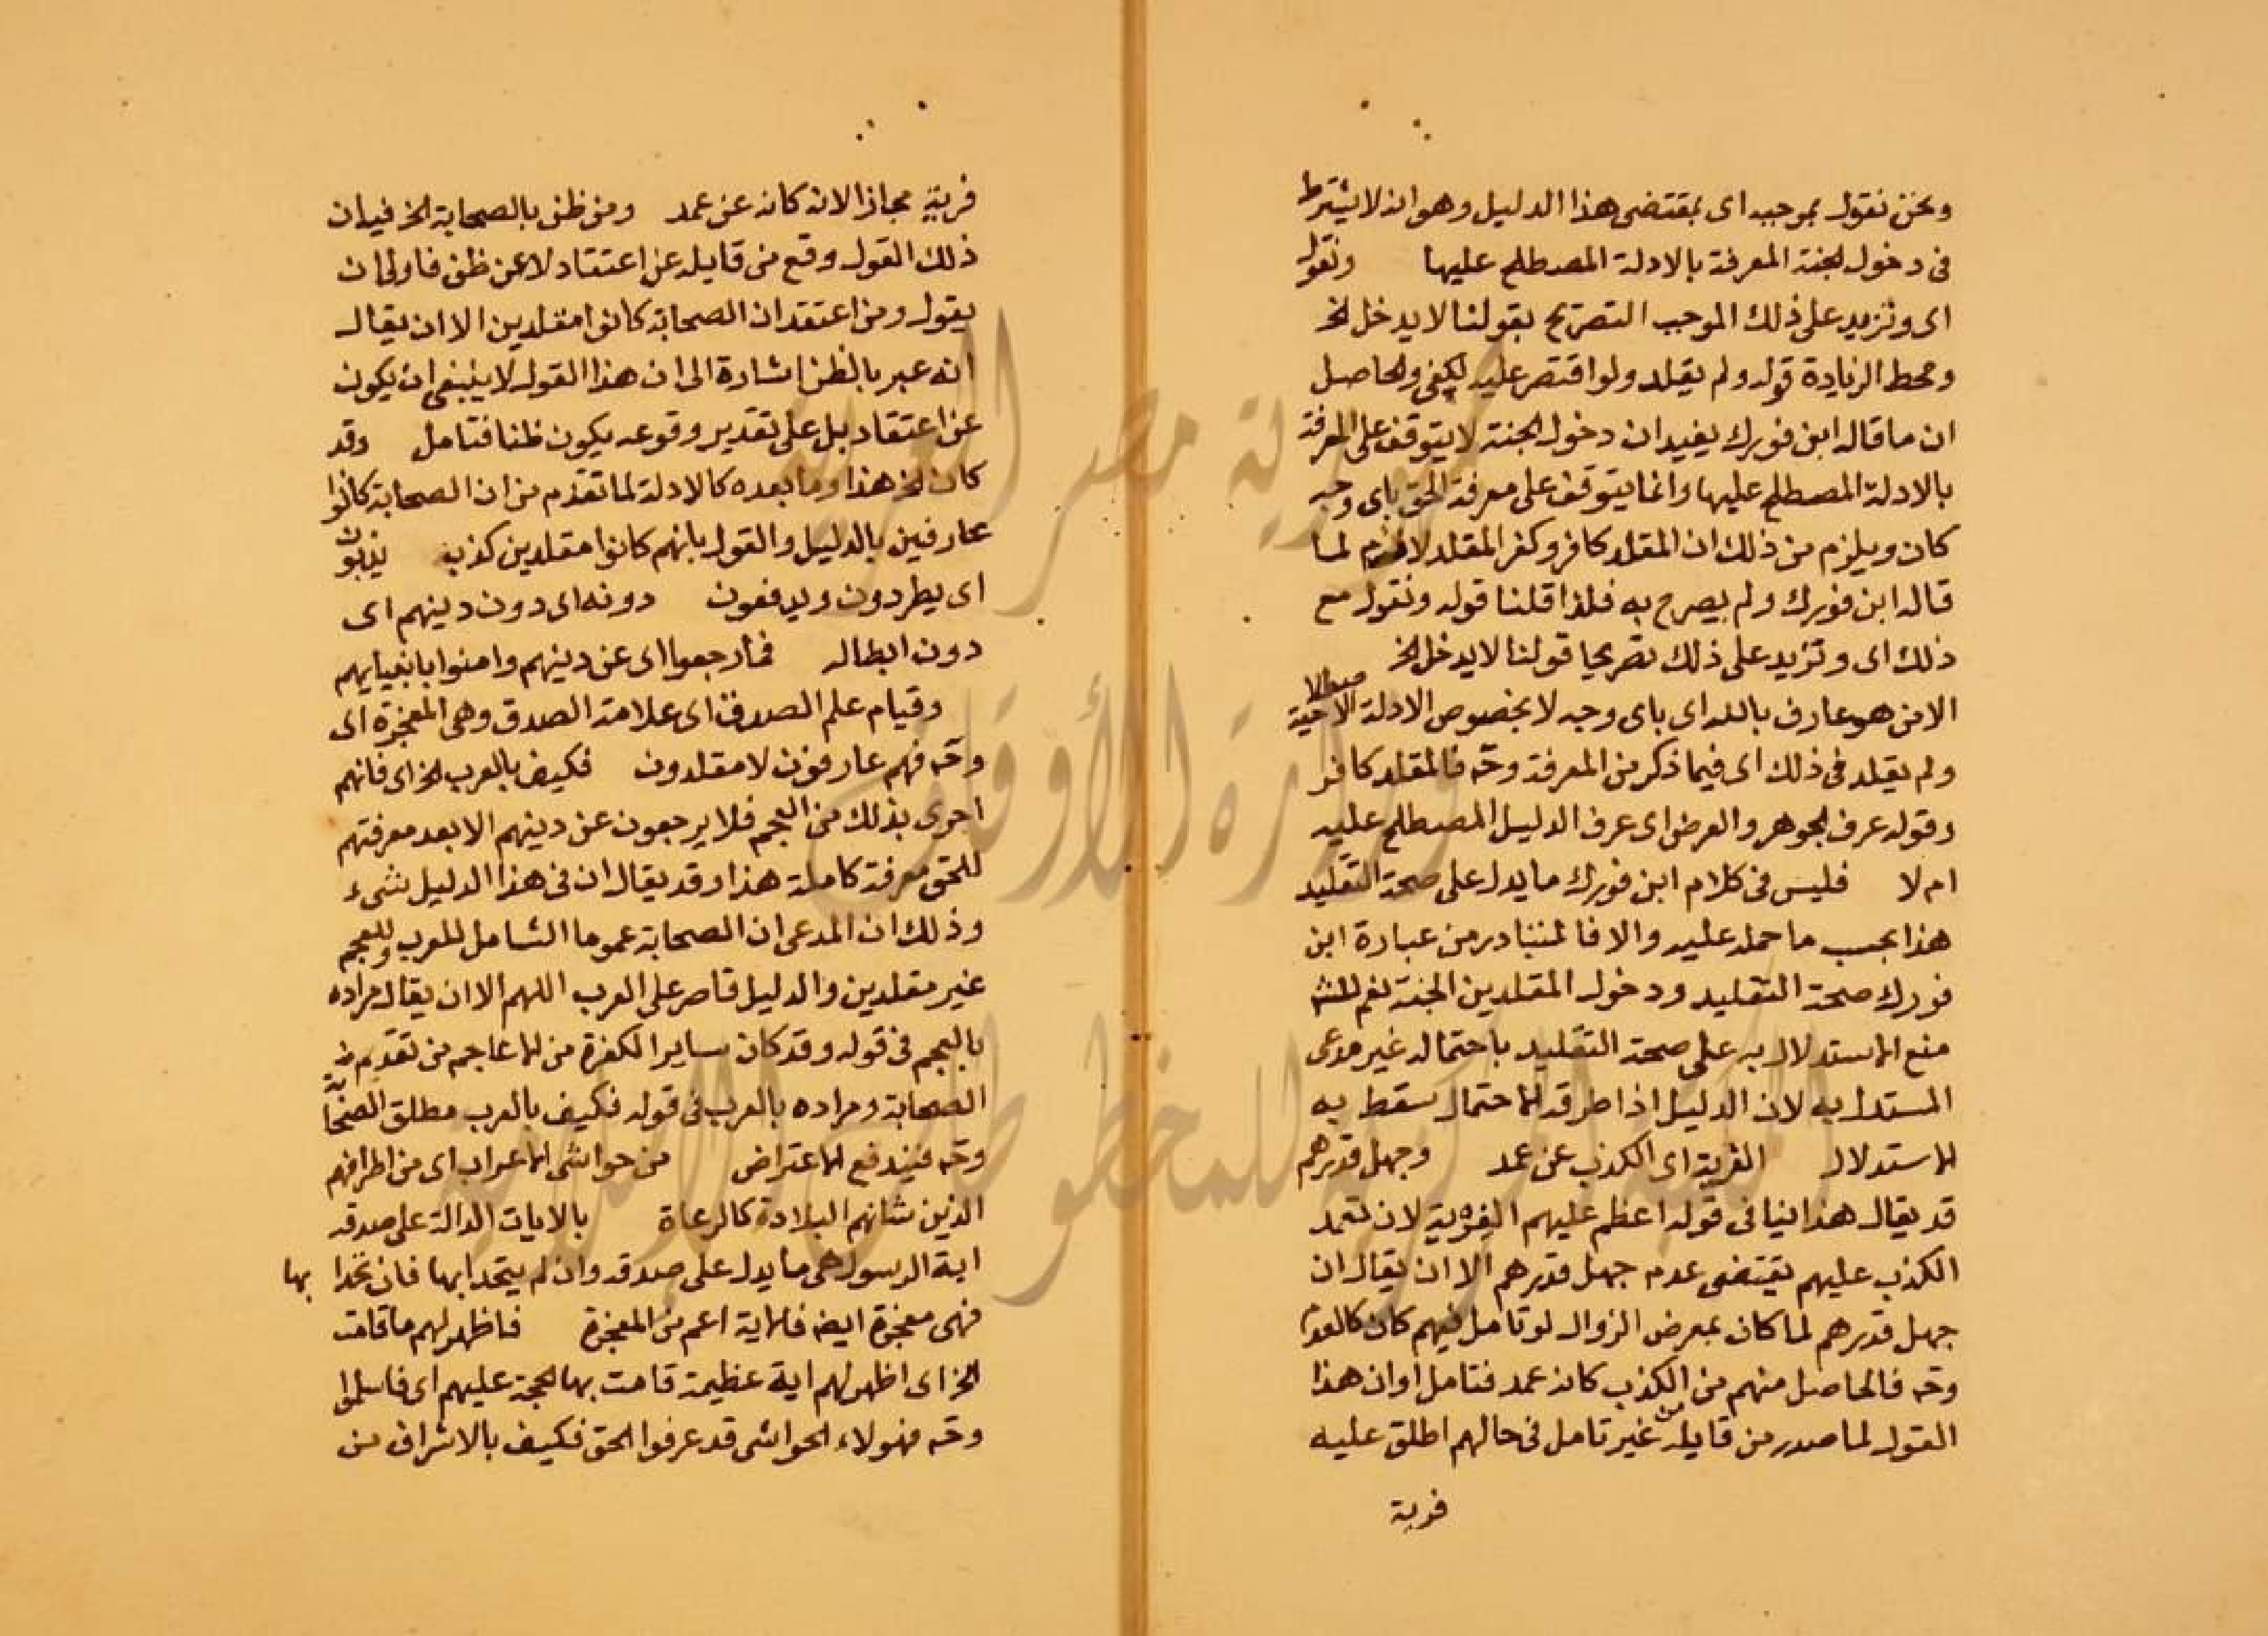 ونحن نقول بموجبه اى بمقتضى هذا الدليل وهو انه لا يشترط
فى دخول الجنة المعرفة بالادلة المصطلح عليها ونقول
اى ونزيد على ذلك الموجب التصريح بقولنا لا يدخل الخ
ومحط الزيادة قوله ولم يقلد ولو اقتصر عليه لكفى والحاصل
ان ما قاله ابن فورك يفيد ان دخول الجنة لا يتوقف على المعرفة
بالادلة المصطلح عليها وانما يتوقف على معرفة الحق باى وجه
كان ويلزم من ذلك ان المقلد كافر وكفر المقلد لازم لما
قاله ابن فورك ولم يصرح به فلذا قلنا قوله ونقول مع
ذلك اى ونزيد على ذلك تصريحا قولنا لا يدخل الخ
الا من هو عارف بالله اى باى وجه لا بخصوص الادلة
ولم يقلد فى ذلك اى فيما ذكر من المعرفة وحـ فالمقلد كافر
وقوله عرف الجوهر والعرض اى عرف الدليل المصطلح عليه
ام لا فليس فى كلام ابن فورك ما يدل على صحة التقليد
هذا بحسب ما حمله عليه والا فالمتبادر من عبارة ابن
فورك صحة التقليد ودخول المقلدين الجنة نعم للشـ
منع الاستدلال به على صحة التقليد باحتمال غير مدعى
المستدل به لان الدليل اذا طرقه الاحتمال سقط به
الاستدلال الفرية اى الكذب عن عمد وجهل قدرهم
قد يقال هذا ينافى قوله اعظم عليهم الفرية لان تعمد
الكذب عليهم يقتضى عدم جهل قدرهم الا ان يقال ان
جهل قدرهم لما كان بمعرض الزوال لو تامل فيهم كان كالعدم
وحـ فالحاصل منهم من الكذب كانه عمد فتامل او ان هذا
القول لما صدر من قايله من غير تامل فى حالهم اطلق عليه
فرية
فرية مجازا لانه كانه عن عمد ومن ظن بالصحابة الخ فيه ان
ذلك القول وقع من قايله عن اعتقاد لا عن ظن فاولى ان
يقول ومن اعتقد ان الصحابة كانوا مقلدين الا ان يقال
انه عبر بالظن اشارة الى ان هذا القول لا ينبغى ان يكون
عن اعتقاد بل على تقدير وقوعه يكون ظنا فتامل وقد
كان الخ هذا وما بعده كالادلة لما تقدم من ان الصحابة كانوا
عارفين بالدليل والقول بانهم كانوا مقلدين كذب يذبون
اى يطردون ويدفعون دونه اى دون دينهم اى
دون ابطاله فما رجعوا اى عن دينهم وامنوا بانبيايهم
وقيام علم الصدق اى علامة الصدق وهى المعجزة اى
وحـ فهم عارفون لا مقلدون فكيف بالعرب الخ اى فانهم
احرى بذلك من العجم فلا يرجعون عن دينهم الا بعد معرفتهم
للحق معرفة كاملة هذا وقد يقال ان فى هذا الدليل شىء
وذلك ان المدعى ان الصحابة عموما الشامل للعرب وللعجم
غير مقلدين والدليل قاصر على العرب اللهم الا ان يقال مراده
بالعجم فى قوله وقد كان ساير الكفرة من الاعاجم من تقدم من
الصحابة ومراده بالعرب فى قوله فكيف بالعرب مطلق الصحابة
وحـ فيندفع الاعتراض من حواشى الاعراب اى من اطرافهم
الذين شانهم البلادة كالرعاة بالايات الدالة على صدقه
اية الرسول هى ما يدل على صدقه وان لم يتحدا بها فان تحدا بها
فهى معجزة ايضا فالاية اعم من المعجزة فاظهر لهم ما قامت
الخ اى اظهر لهم اية عظيمة قامت بها الحجة عليهم اى فاسلموا
وحـ فهولاء الحواشى قد عرفوا الحق فكيف بالاشراف من